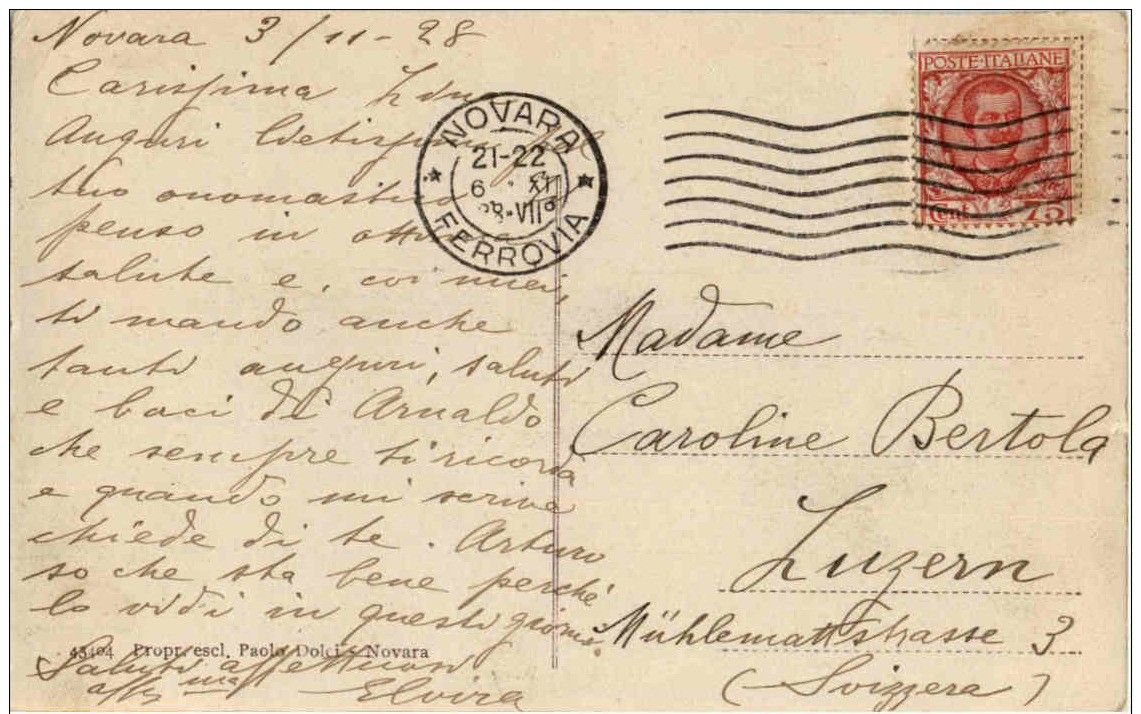 Novara 3/11-28
Carissima
Auguri lietissimi pel
tuo onomastico
penso in
salute e, coi miei,
ti mando anche
tanti auguri, saluti
e baci di Arnaldo
che sempre ti ricorda
e quando mi scrive
chiede di te. Arturo
so che sta bene perché
lo vidi in questi giorni.
Saluti affettuosi
aff.ma Elvira
43404 Propr. escl. Paolo Dolci - Novara
NOVARA
21-22
6 XI
28-VII
FERROVIA
POSTE·ITALIANE
Cent. 75
Madame
Caroline Bertola
Luzern
Mühlemattstrasse 3
(Svizzera)